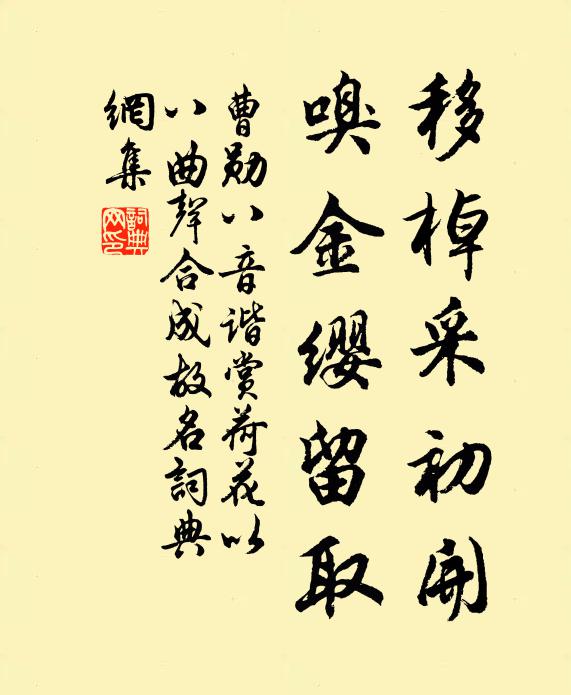 移棹采初開
嗅金缨留取
曹勋八音谐賞荷花以
八曲聲合成故名詞典
網集
詞典网印